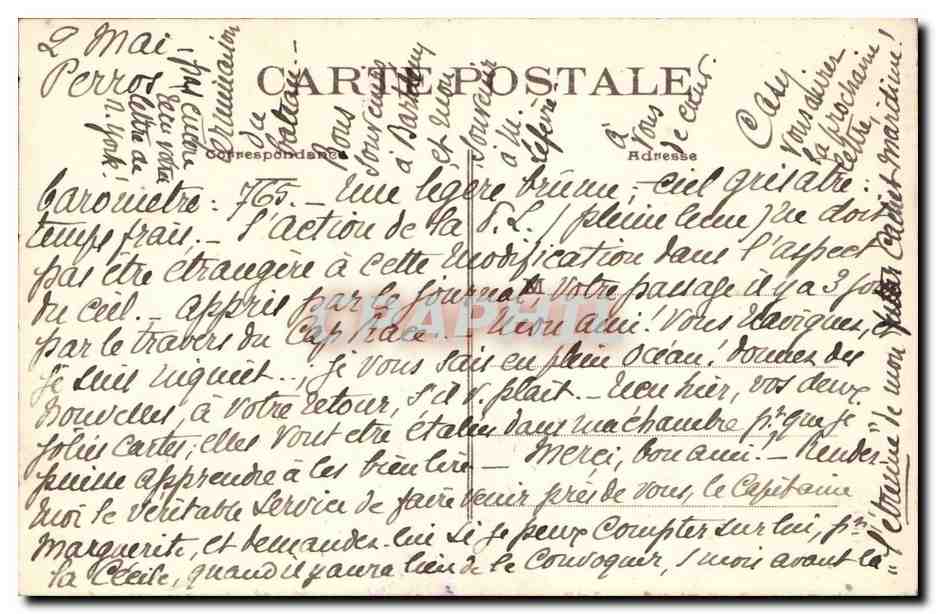 2 Mai -
Perros
CARTE POSTALE
Correspondance
Adresse
baromètre : 765. - Une légère brume ; ciel grisâtre :
temps frais. - L'action de la P.L. (pleine lune) ne doit
pas être étrangère à cette modification dans l'aspect
du ciel. - appris par le journal, votre passage il y a 3 jours
par le travers du Cap Race. - Mon ami ! vous naviguez, et
je suis inquiet... ; je vous sais en plein océan ! donnez des
nouvelles, à votre retour, s'il v. plait. - Reçu hier, vos deux
jolies cartes ; elles vont être étalées dans ma chambre pr. que je
puisse apprendre à les bien lire - Merci, bon ami. - Rendez-
moi le véritable service de faire venir près de vous, le Capitaine
Marguerite, et demandez-lui si je peux compter sur lui, pr.
la Cécile, quand il y aura lieu de le convoquer, 1 mois avant la
"l'étrenne" de mon Cachet maritime !
pas encore
reçu votre
lettre de
N. York !
du
bateau -
Bons
souvenirs
à
et mon
souvenir
à M.
Lefèvre
à
vous
de cœur
Casy
vous
la prochaine
lettre,